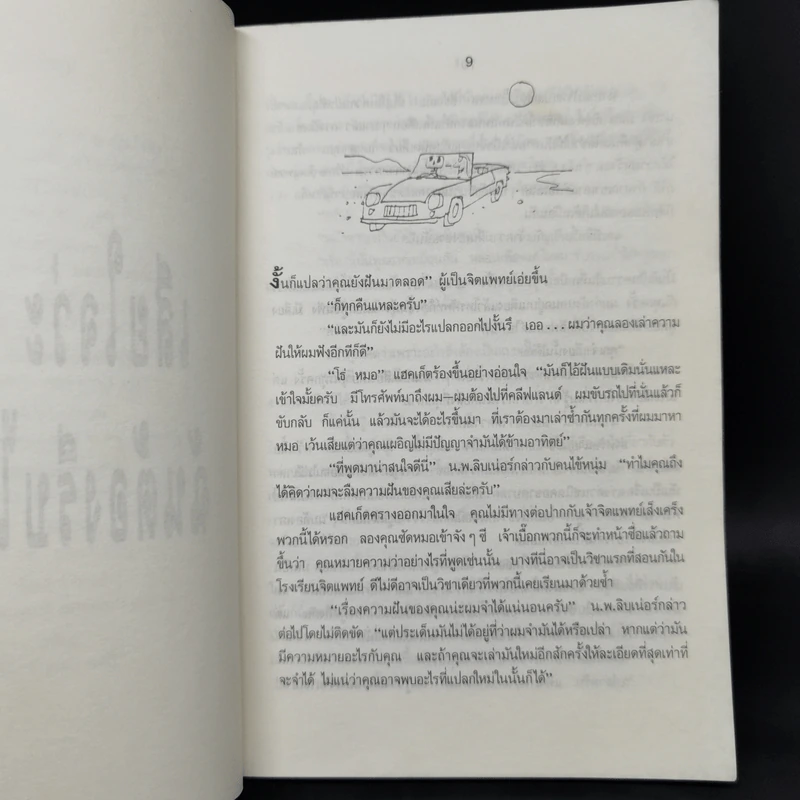 9
งั้นก็แปลว่าคุณยังฝันมาตลอด” ผู้เป็นจิตแพทย์เอ่ยขึ้น
“ก็ทุกคืนแหละครับ”
“และมันก็ยังไม่มีอะไรแปลกออกไปงั้นรึ เออ...ผมว่าคุณลองเล่าความ
ฝันให้ผมฟังอีกทีก็ดี”
“โธ่ หมอ” แฮคเก็ตร้องขึ้นอย่างอ่อนใจ “มันก็ไอ้ฝันแบบเดิมนั่นแหละ
เข้าใจมั้ยครับ มีโทรศัพท์มาถึงผม—ผมต้องไปที่คลีฟแลนด์ ผมขับรถไปที่นั่นแล้วก็
ขับกลับ ก็แค่นั้น แล้วมันจะได้อะไรขึ้นมา ที่เราต้องมาเล่าซ้ำกันทุกครั้งที่ผมมาหา
หมอ เว้นเสียแต่ว่าคุณเผอิญไม่มีปัญญาจำมันได้ข้ามอาทิตย์”
“ที่พูดมาน่าสนใจดีนี่” น.พ.ลิบเน่อร์กล่าวกับคนไข้หนุ่ม “ทำไมคุณถึง
ได้คิดว่าผมจะลืมความฝันของคุณเสียล่ะครับ”
แฮคเก็ตครางออกมาในใจ คุณไม่มีทางต่อปากกับเจ้าจิตแพทย์เส็งเคร็ง
พวกนี้ได้หรอก ลองคุณซัดหมอเข้าจังๆ ซี เจ้าเบื๊อกพวกนี้ก็จะทำหน้าซื่อแล้วถาม
ขึ้นว่า คุณหมายความว่าอย่างไรที่พูดเช่นนั้น บางทีนี่อาจเป็นวิชาแรกที่สอนกันใน
โรงเรียนจิตแพทย์ ดีไม่ดีอาจเป็นวิชาเดียวที่พวกนี้เคยเรียนมาด้วยซ้ำ
“เรื่องความฝันของคุณน่ะผมจำได้แน่นอนครับ” น.พ.ลิบเน่อร์กล่าว
ต่อไปโดยไม่ติดขัด “แต่ประเด็นมันไม่ได้อยู่ที่ว่าผมจำมันได้หรือเปล่า หากแต่ว่ามัน
มีความหมายอะไรกับคุณ และถ้าคุณจะเล่ามันใหม่อีกสักครั้งให้ละเอียดที่สุดเท่าที่
จะจำได้ ไม่แน่ว่าคุณอาจพบอะไรที่แปลกใหม่ในนั้นก็ได้”